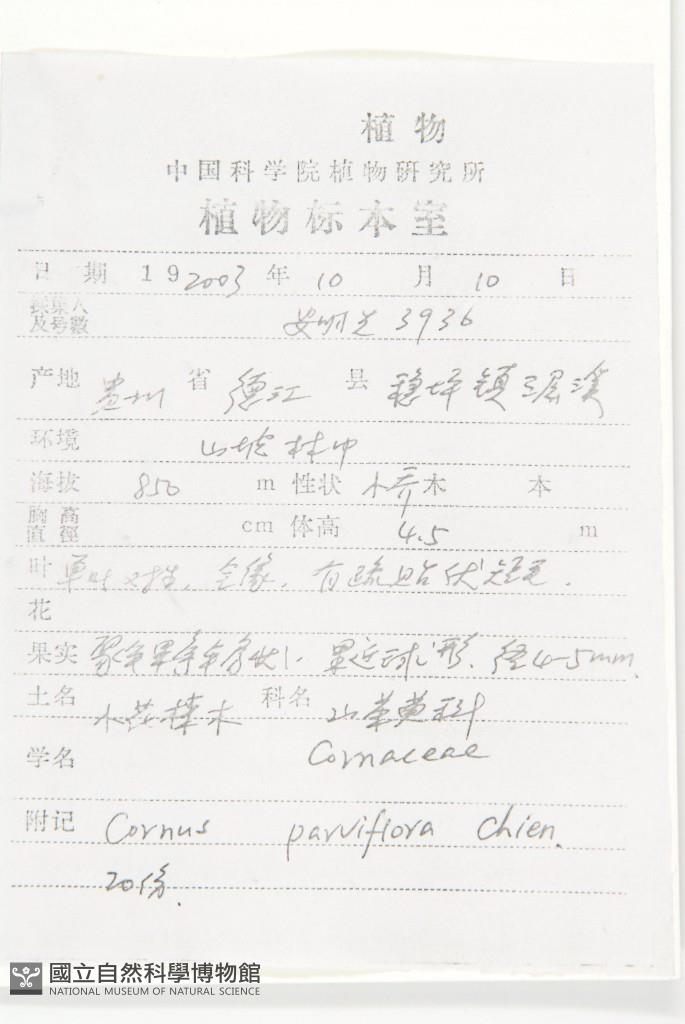 植物
中国科学院植物研究所
植物标本室
日期 19 2003 年 10 月 10 日
採集人
及号數 安明先 3936
产地 贵州 省 德江 县 稳坪镇
环境 山坡林中
海拔 850 m 性状 小乔木 本
胸高
直徑 cm 体高 4.5 m
叶 单叶对生，全缘，有疏贴伏短毛.
花
果实 果近球形，径4-5mm.
土名 小花梾木 科名 山茱萸科
学名 Cornaceae
附记 Cornus parviflora Chien.
20份.
國立自然科學博物館
NATIONAL MUSEUM OF NATURAL SCIENCE